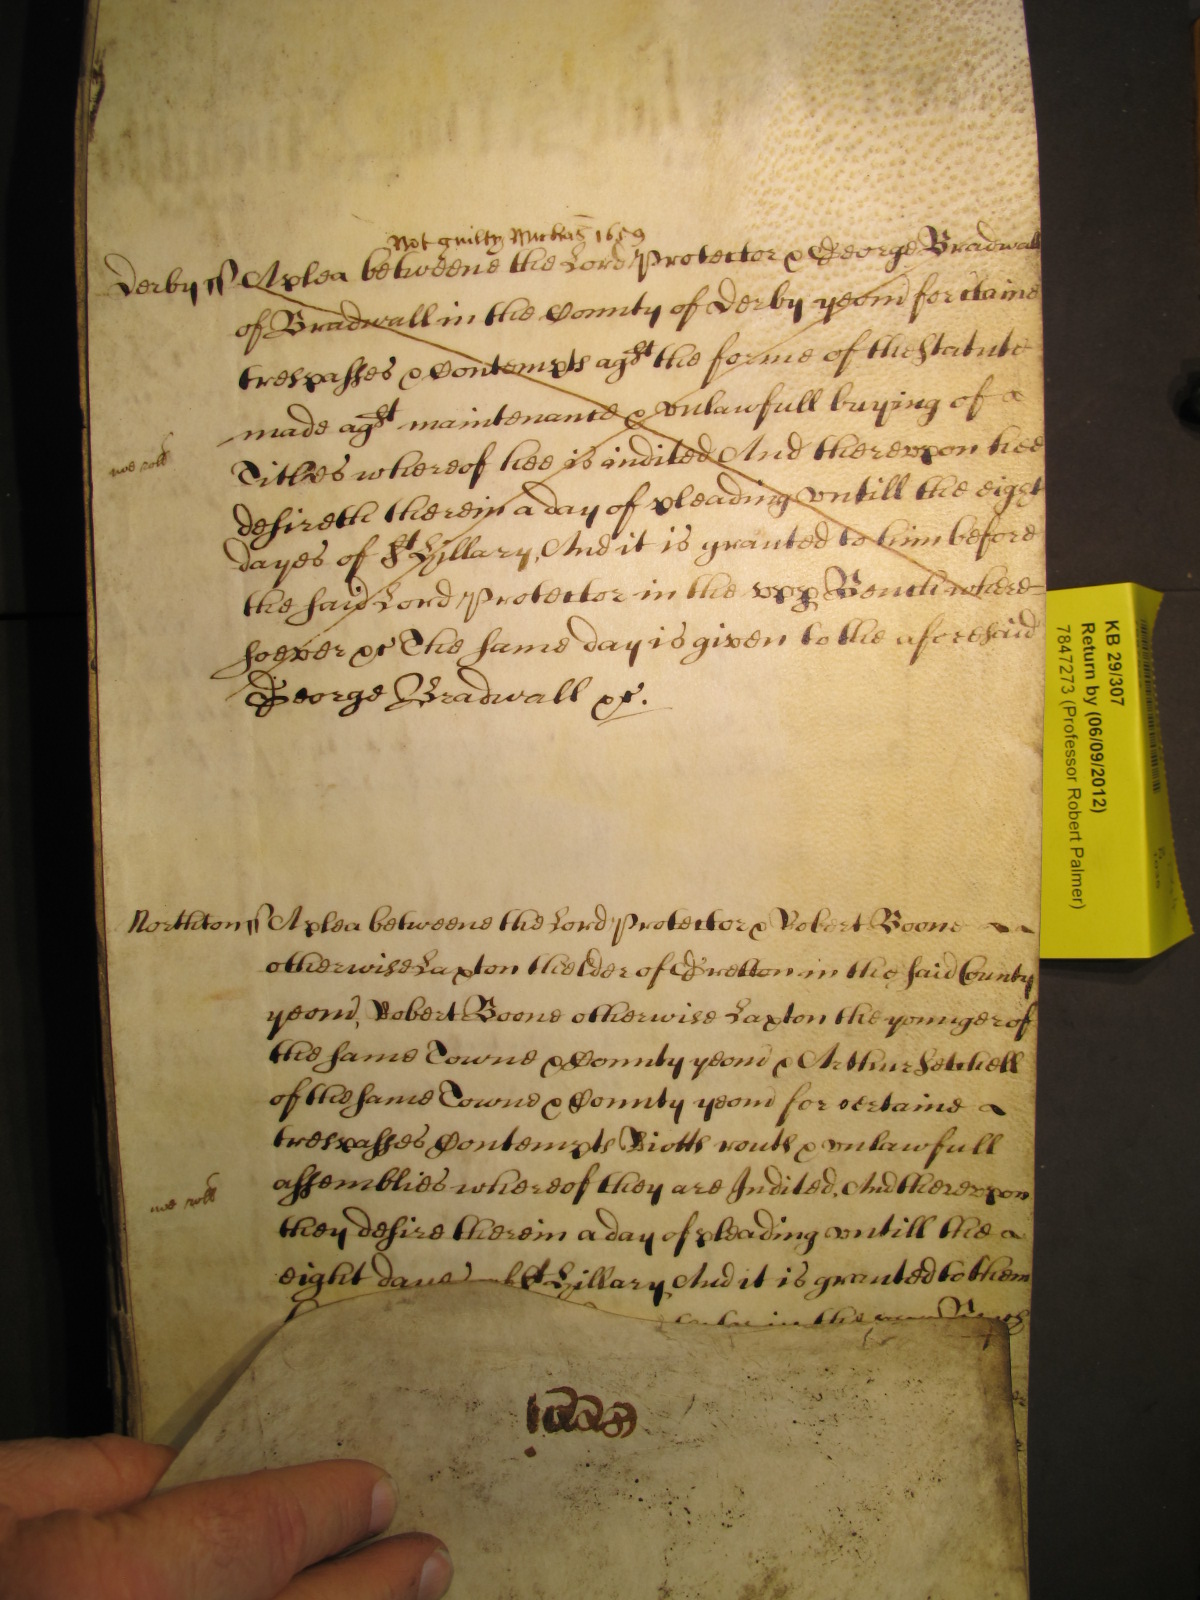 Not guilty Michas 1659
Derby ss A plea betweene the Lord Protector & George Bradwall
of Bradwall in the County of Derby yeom for ctaine
trespasses & Contempts agst the forme of the Statute
made agst maintenance & unlawfull buying of
Titles whereof hee is indited And thereupon hee
desireth therein a day of pleading untill the eight
dayes of St Hillary, And it is granted to him before
the said Lord Protector in the upp Bench where=
soever &c The same day is given to the aforesaid
George Bradwall &c.
noe roll
Northton ss A plea betweene the Lord Protector & Robert Boone
otherwise Laxton thelder of Gretton in the said County
yeom, Robert Boone otherwise Laxton the younger of
the same Towne & County yeom & Arthur Setchell
of the same Towne & County yeom for certaine
trespasses Contempts Riotts routs & unlawfull
assemblies whereof they are Indited, And thereupon
they desire therein a day of pleading untill the
eight dayes of St Hillary, And it is granted to them
in the upp Bench
noe roll
1658
KB 29/307
Return by (06/09/2012)
7847273 (Professor Robert Palmer)